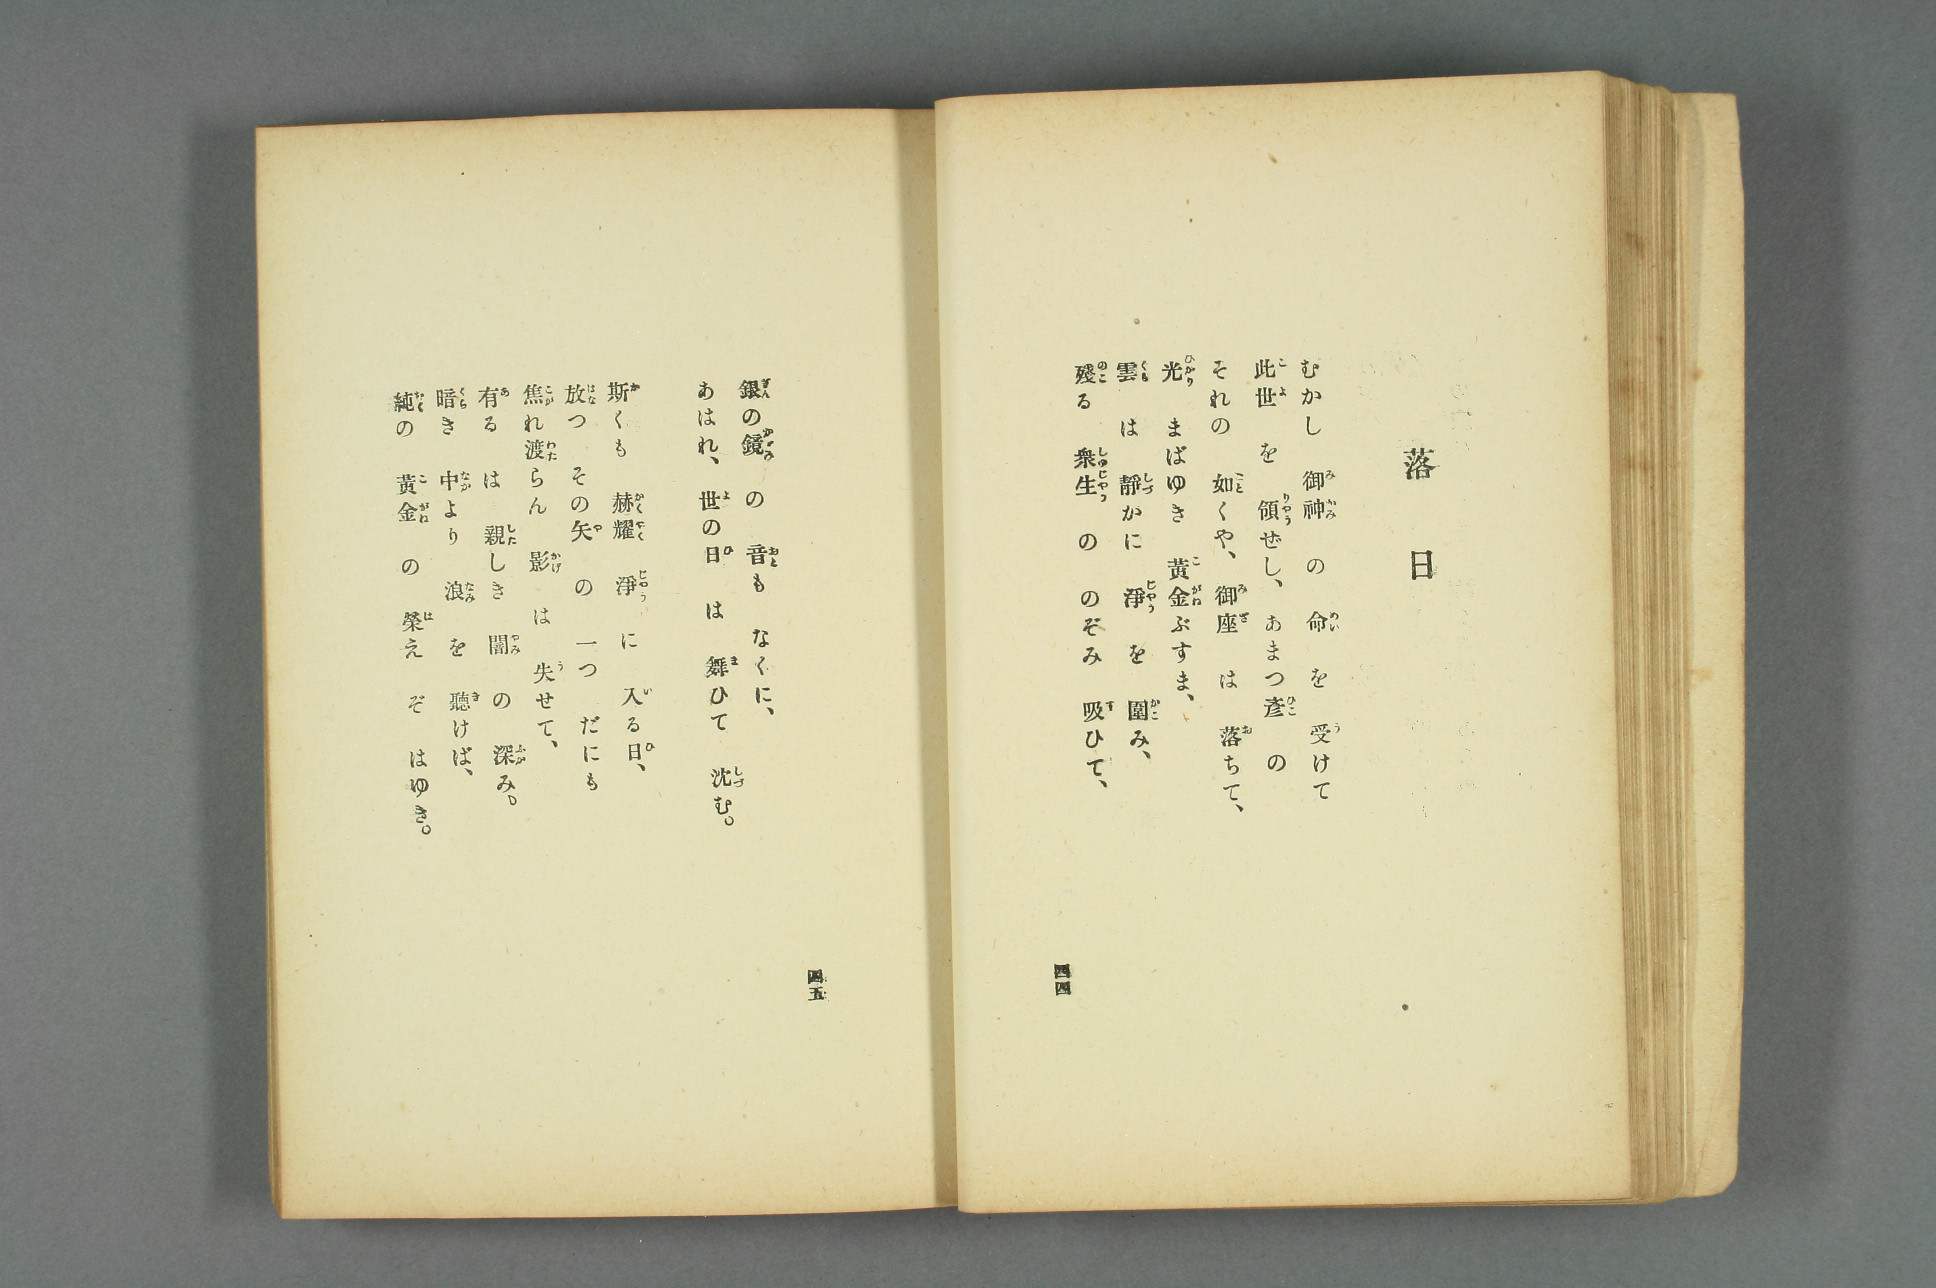 落日
むかし 御神 の 命 を 受けて
此世 を 領せし、あまつ彦 の
それの 如くや、御座 は 落ちて、
光 まばゆき 黄金ぶすま、
雲 は 靜かに 淨 を 圍み、
殘る 衆生 の のぞみ 吸ひて、
四四
銀の鏡 の 音も なくに、
あはれ、世の日 は 舞ひて 沈む。
斯くも 赫耀 淨 に 入る日、
放つ その矢 の 一つ だにも
焦れ渡らん 影 は 失せて、
有る は 親しき 闇 の 深み。
暗き 中より 浪 を 聽けば、
純の 黄金 の 榮え ぞ はゆき。
四五